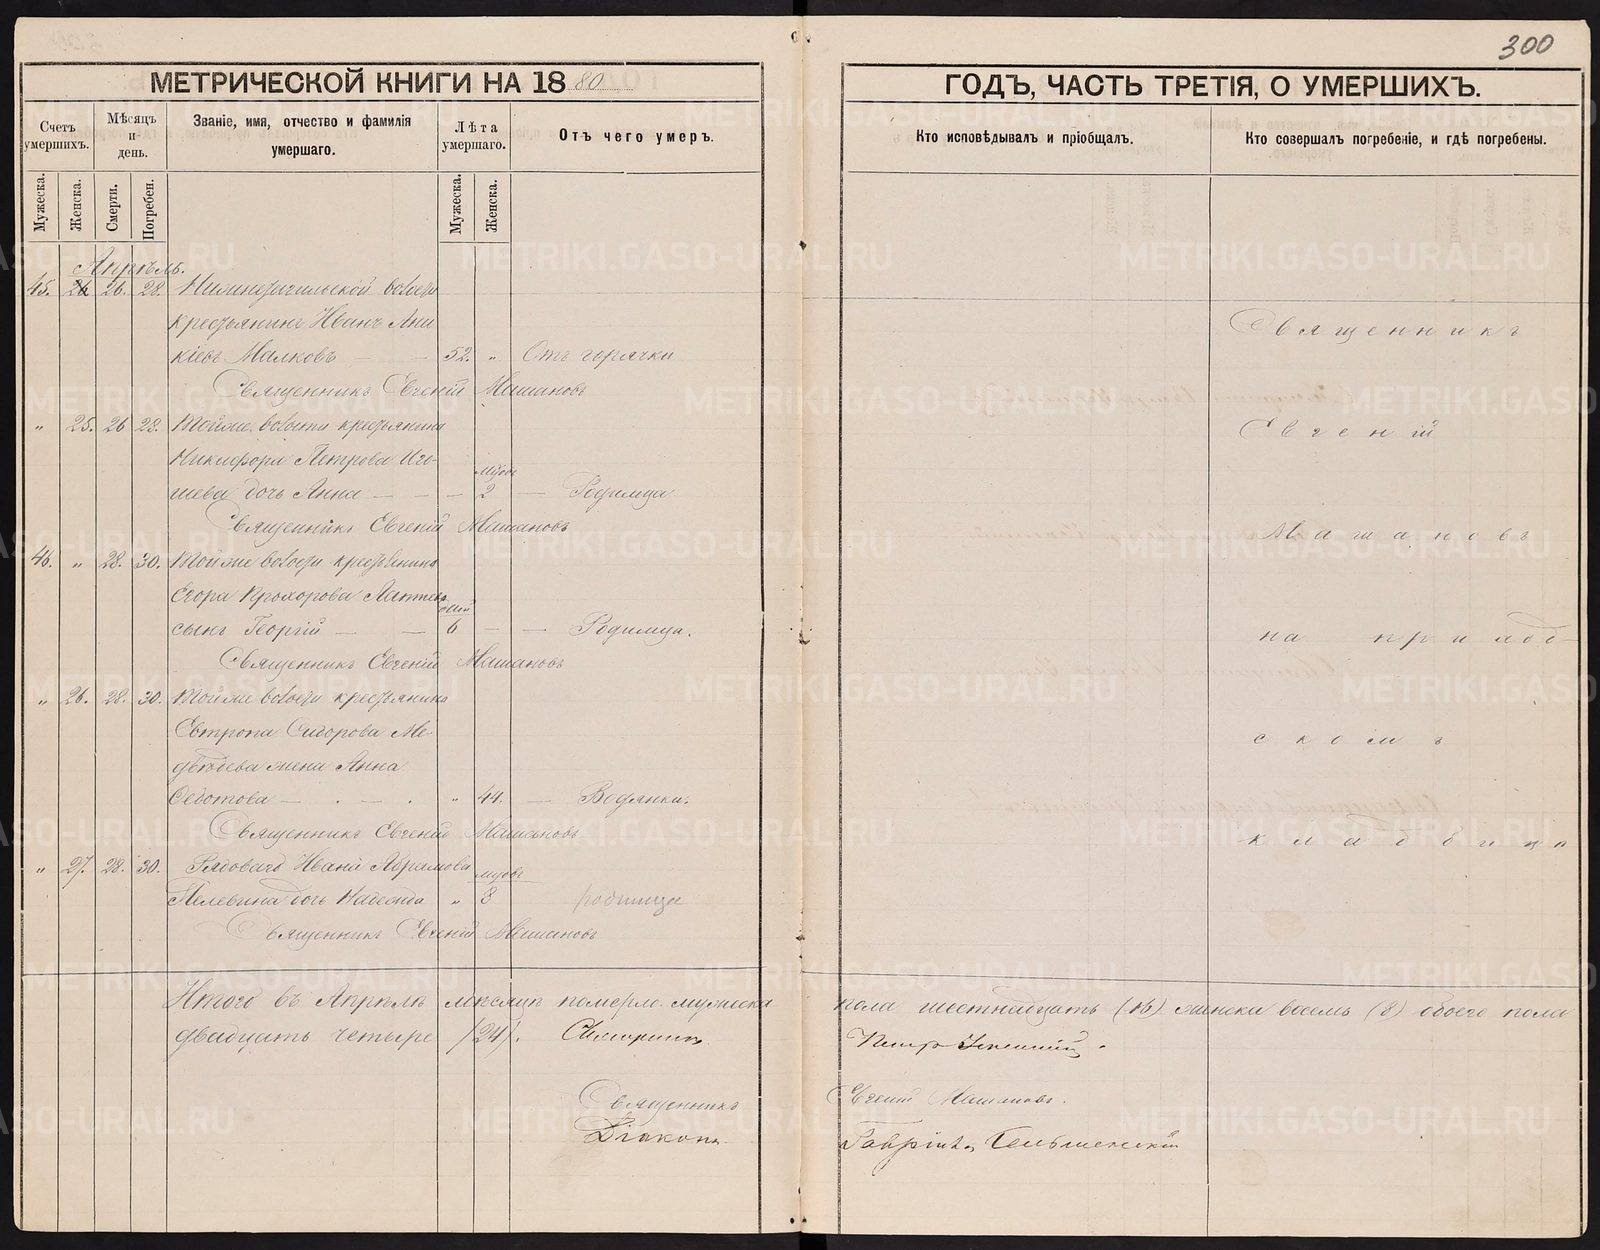 300
МЕТРИЧЕСКОЙ КНИГИ НА 1880
ГОДЪ, ЧАСТЬ ТРЕТІЯ, О УМЕРШИХЪ.
Счетъ умершихъ.
Мѣсяцъ и день.
Званіе, имя, отчество и фамилія умершаго.
Лѣта умершаго.
Отъ чего умеръ.
Кто исповѣдывалъ и пріобщалъ.
Кто совершалъ погребеніе, и гдѣ погребены.
Мужеска.
Женска.
Смерти.
Погребен.
Мужеска.
Женска.
Апрѣль.
45. 26. 28. волости
крестьянинъ Иванъ Ани
кіевъ Малковъ — — 52. „ Отъ горячки
Священникъ Евгеній Машановъ
„ 25. 26 28. Тойже волости крестьянина
Никифора Петрова
дочь Анна — — — 2 — Родимца
Священникъ Евгеній Машановъ
46. „ 28. 30. Тойже волости крестьянина
Егора Прохорова
сынъ Георгій — — 6 — — Родимца.
Священникъ Евгеній Машановъ
„ 26. 28. 30. Тойже волости крестьянина
Евтропа Сидорова Ме-
двѣдева жена Анна
Федотова — . — . „ 44. — Водянки.
Священникъ Евгеній Машановъ
„ 27. 28. 30. Рядоваго Ивана Абрамова
Пелевина дочь Надежда „ 8 родимца
Священникъ Евгеній Машановъ
Священникъ
Евгеній
Машановъ
на приход-
скомъ
кладбищѣ
Итого въ Апрѣлѣ мѣсяцѣ померло мужеска пола шестнадцать (16) женска восемь (8) обоего пола
двадцать четыре (24).
Священникъ Евгеній Машановъ.
Діаконъ